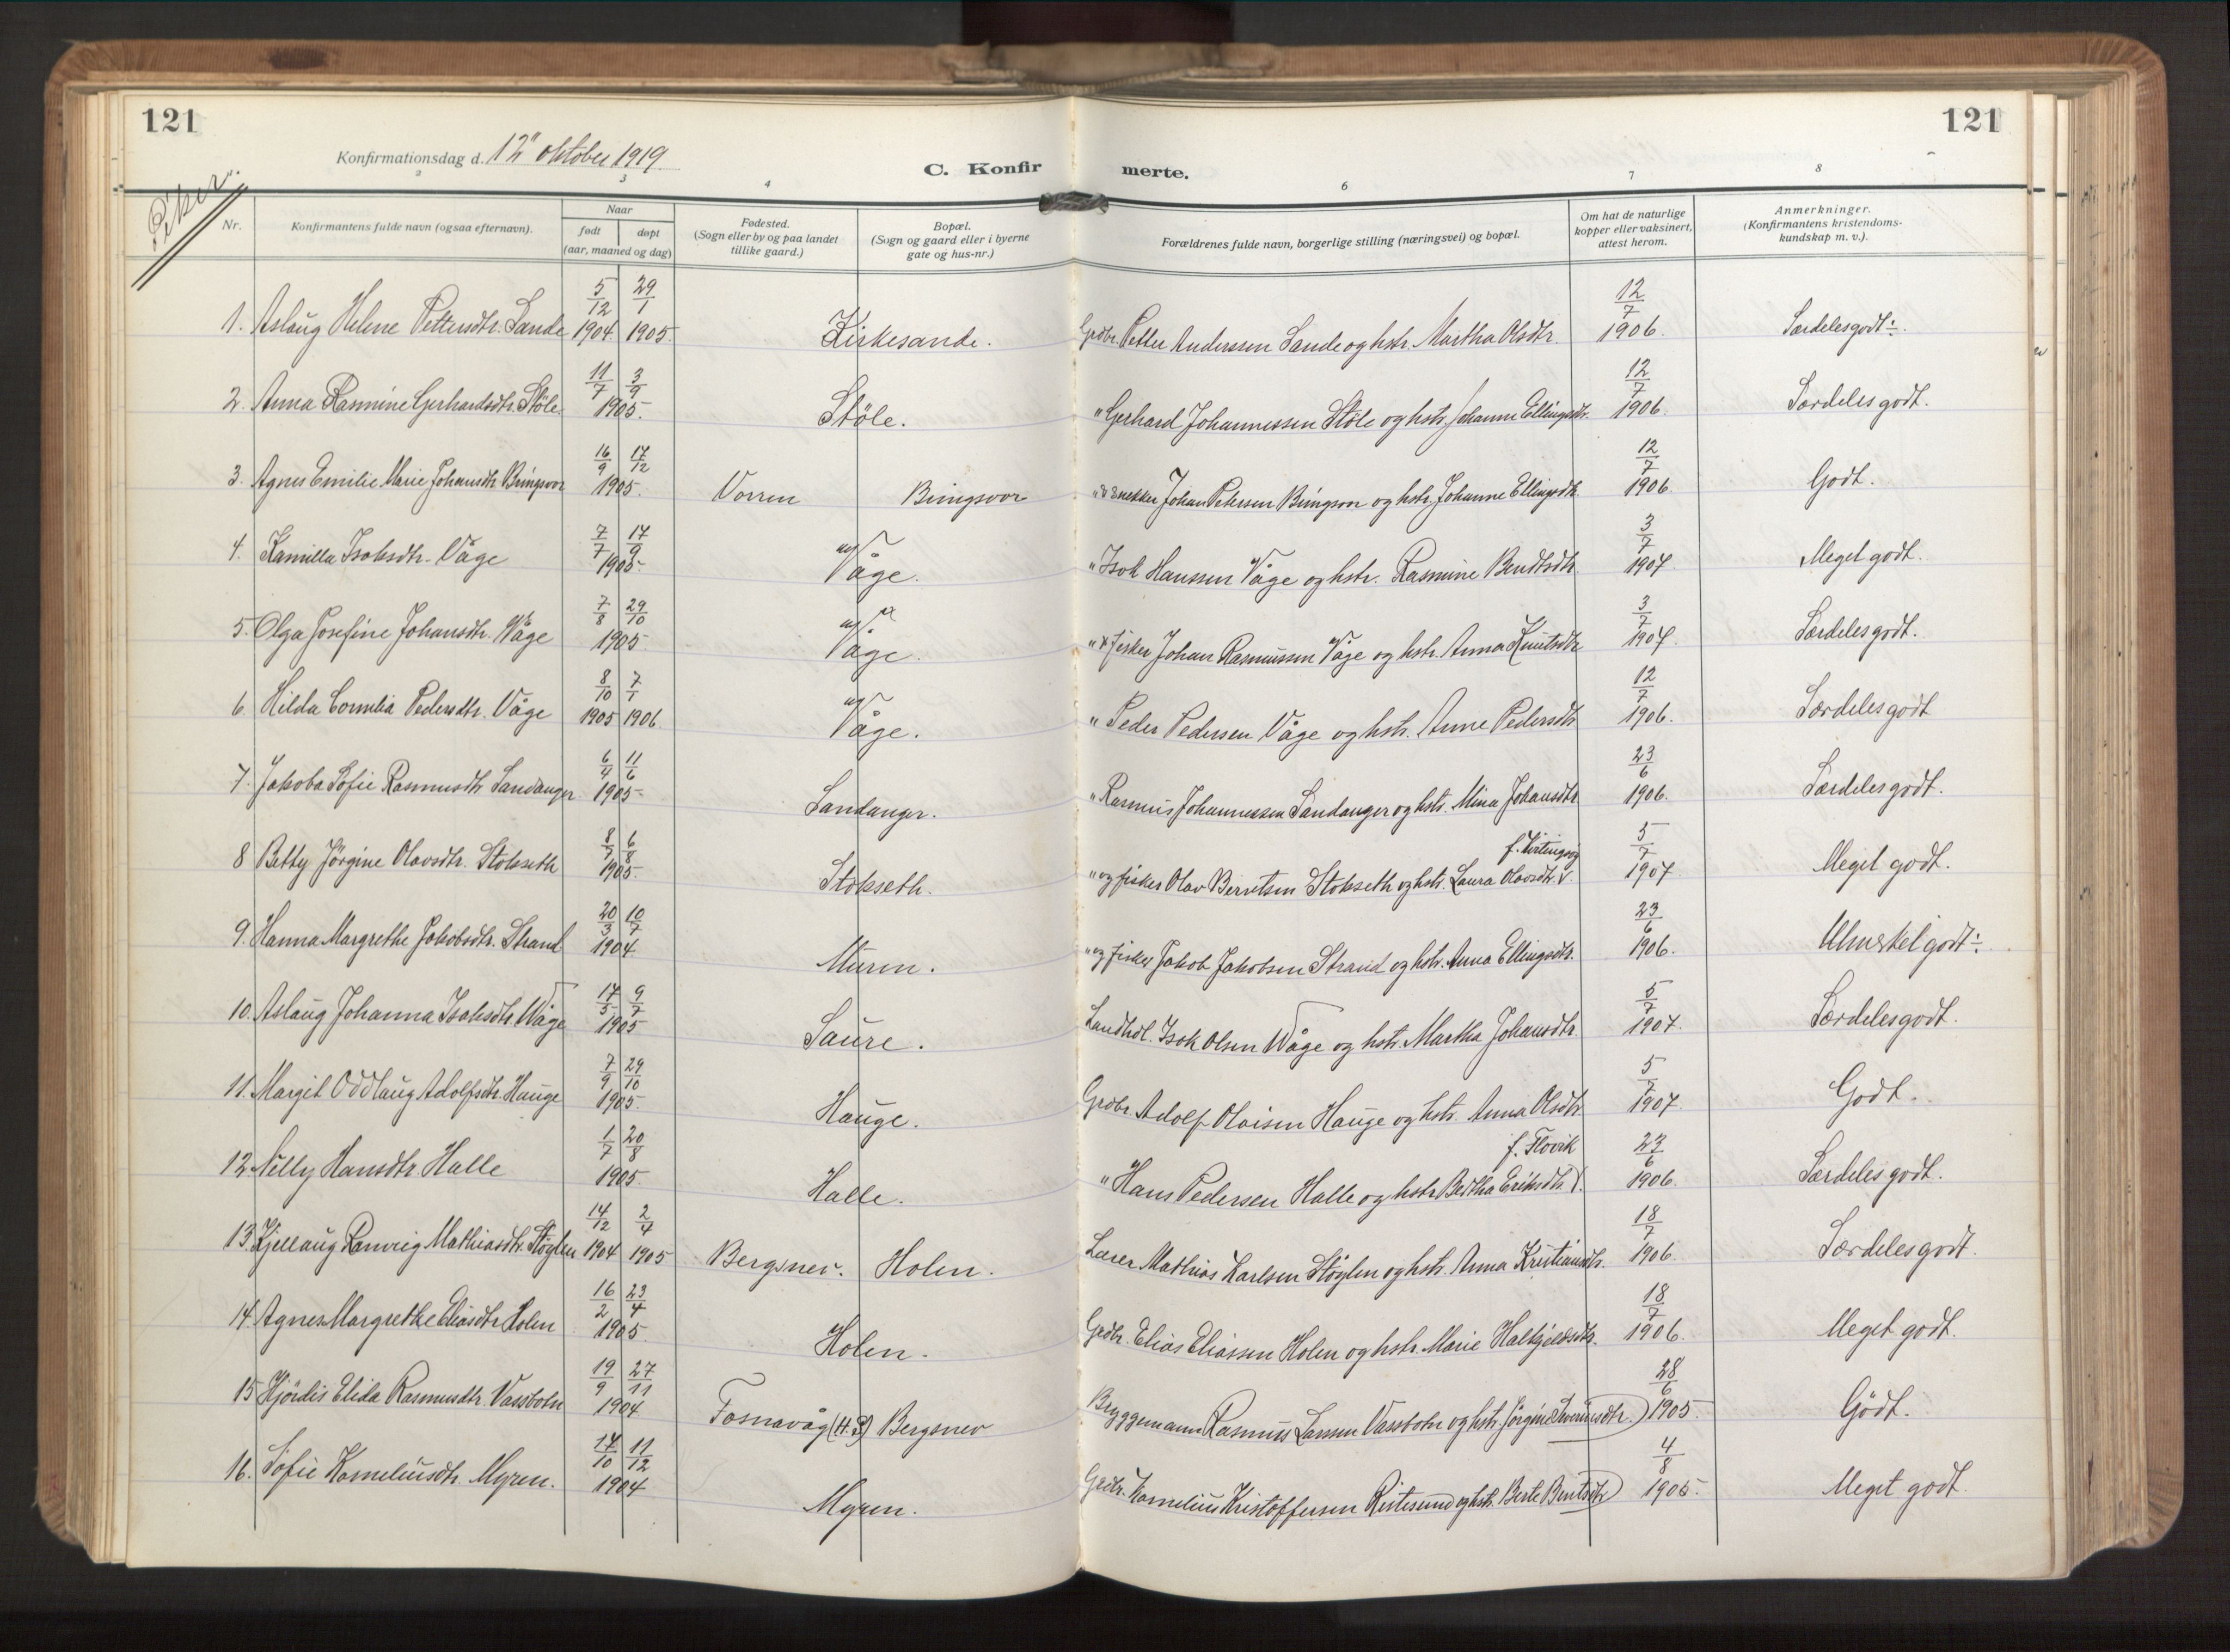 121
121
Konfirmationsdag d. 12" oktober 1919.
C. Konfirmerte.
Piker.
2 3 4 6 7 8
Nr.
Konfirmantens fulde navn (ogsaa efternavn).
Naar
født døpt
(aar, maaned og dag)
Fødested.
(Sogn eller by og paa landet
tillike gaard.)
Bopæl.
(Sogn og gaard eller i byerne
gate og hus-nr.)
Forældrenes fulde navn, borgerlige stilling (næringsvei) og bopæl.
Om hat de naturlige
kopper eller vaksinert,
attest herom.
Anmerkninger.
(Konfirmantens kristendoms-
kundskap m. v.).
1. Aslaug Helene Pettersdtr. Sande 5/12 1904 29/1 1905. Kirkesande. Grdbr. Petter Anderssen Sande og hstr. Martha Olsdtr. 12/7 1906. Særdeles godt ÷.
2. Anna Rasmine Gerhardsdtr. Støle 11/7 3/9 1905. Støle. " Gerhard Johannessen Støle og hstr. Johanne Ellingsdtr. 12/7 1906. Særdeles godt.
3. Agnes Emilie Marie Johansdtr Bringsvor 16/9 17/12 1905. Vorren Bringsvor " snekker Johan Petersen Bringsvor og hstr. Johanne Ellingsdtr. 12/7 1906. Godt.
4. Kamilla Isaksdtr. Våge 7/7 17/9 1905. Våge. " Isak Hanssen Våge og hstr. Rasmine Bendtsdtr 3/7 1907 Meget godt.
5. Olga Josefine Johansdtr. Våge 7/8 29/10 1905. Våge. " fisker Johan Rasmussen Våge og hstr. Anna Knutsdtr 3/7 1907. Særdeles godt.
6. Hilda Cornelia Pedersdtr. Våge 8/10 1905 7/1 1906. Våge. " Peder Pedersen Våge og hstr. Anne Pedersdtr 12/7 1906. Særdeles godt
7. Jakoba Sofie Rasmusdtr Sandanger 6/4 11/6 1905. Sandanger. " Rasmus Johannessen Sandanger og hstr. Mina Johansdtr 23/6 1906. Særdeles godt.
8 Betty Jørgine Olavsdtr. Stokseth 8/7 6/8 1905. Stokseth. " og fisker Olav Berntsen Stokseth og hstr. Laura Olavsdtr. 5/7 1907 Meget godt.
9. Hanna Margrethe Jakobsdtr. Strand 20/3 10/7 1904 Muren. " og fisker Jakob Jakobsen Strand og hstr. Anna Ellingsdtr. 23/6 1906. Utmerket godt ÷.
10. Aslaug Johanna Isaksdtr Våge 17/5 9/7 1905 Saure. Landhdl. Isak Olsen Våge og hstr. Martha Johansdtr 5/7 1907. Særdeles godt.
11. Margit Oddlaug Adolfsdtr. Hauge 7/9 29/10 1905. Hauge. Grdbr. Adolf Olaisen Hauge og hstr. Anna Olsdtr 5/7 1907. Godt.
12. Nelly Hansdtr Halle 1/7 20/8 1905. Halle. " Hans Pedersen Halle og hstr Bertha Eriksdtr. f. Flovik 23/6 1906. Særdeles godt.
13. Kjellaug Ranveig Mathiasdtr. Støylen 14/12 1904 2/4 1905 Bergsnev. Holen. Lærer Mathias Karlsen Støylen og hstr. Anna Kristiansdtr. 18/7 1906. Særdeles godt.
14. Agnes Margrethe Eliasdtr Holen 16/2 23/4 1905. Holen. Grdbr. Elias Eliassen Holen og hstr. Marie Halkjeldsdtr. 18/7 1906. Meget godt.
15 Hjørdis Elida Rasmusdtr. Vassbotn 19/9 27/11 1904 Fosnavåg (H.S) Bergsnev Bryggemann Rasmus Larssen Vassbotn og hstr. Jørgine Iversdtr. 28/6 1905. Godt.
16. Sofie Korneliusdtr. Myren. 17/10 11/12 1904 Myren. Grdbr. Kornelius Kristoffersen Ristesund og hstr. Berte Bentsdtr 4/8 1905. Meget godt.